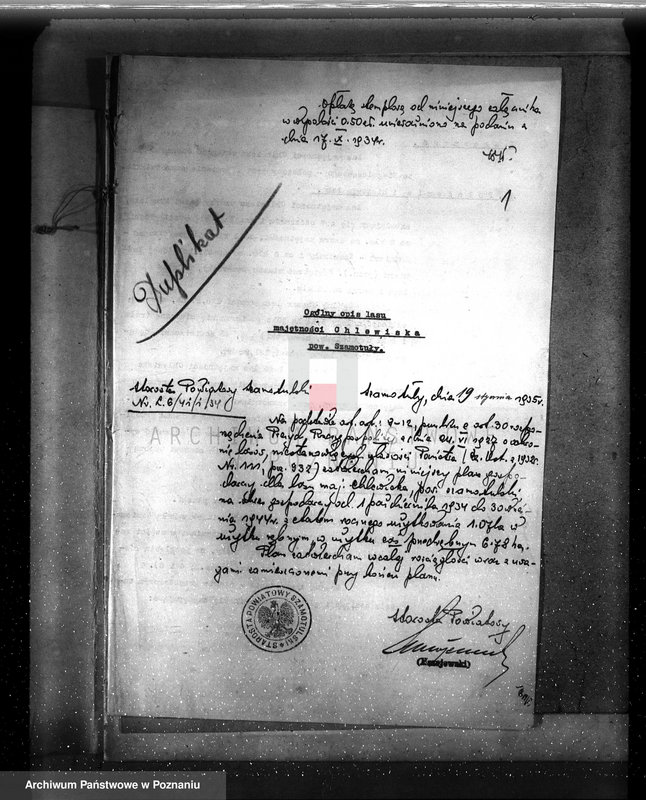 Opłatę stemplową od niniejszego załącznika
w wysokości 0.50 zł. uiszczono na podaniu z
dnia 17. X. 1934r.
1
Duplikat
Ogólny opis lasu
majętności Chlewiska
pow. Szamotuły.
Starosta Powiatowy Szamotulski
Szamotuły, dnia 19 stycznia 1935r.
Nr. L. 6/42/i/34
Na podstawie art. art. 9-12, punktu z art. 30 rozpo-
rządzenia Prezyd. Rzeczypospolitej z dnia 24. VI 1927 o ochro-
nie lasów, niestanowiących własności Państwa (Dz. Ust. z 1932r.
Nr. 111, poz. 932) zatwierdzam niniejszy plan gospo-
darczy dla lasu maj. Chlewiska, pow. szamotulski,
na okres gospodarczy od 1 października 1934 do 30 wrze-
śnia 1944r. z etatem rocznego użytkowania 1.07 ha w
użytku rębnym, w użytku przedrębnym 6.78 ha.
Plan zatwierdzam w całej rozciągłości wraz z uwa-
gami zamieszczonemi przy końcu planu.
STAROSTA POWIATOWY SZAMOTULSKI
Starosta Powiatowy
Archiwum Państwowe w Poznaniu